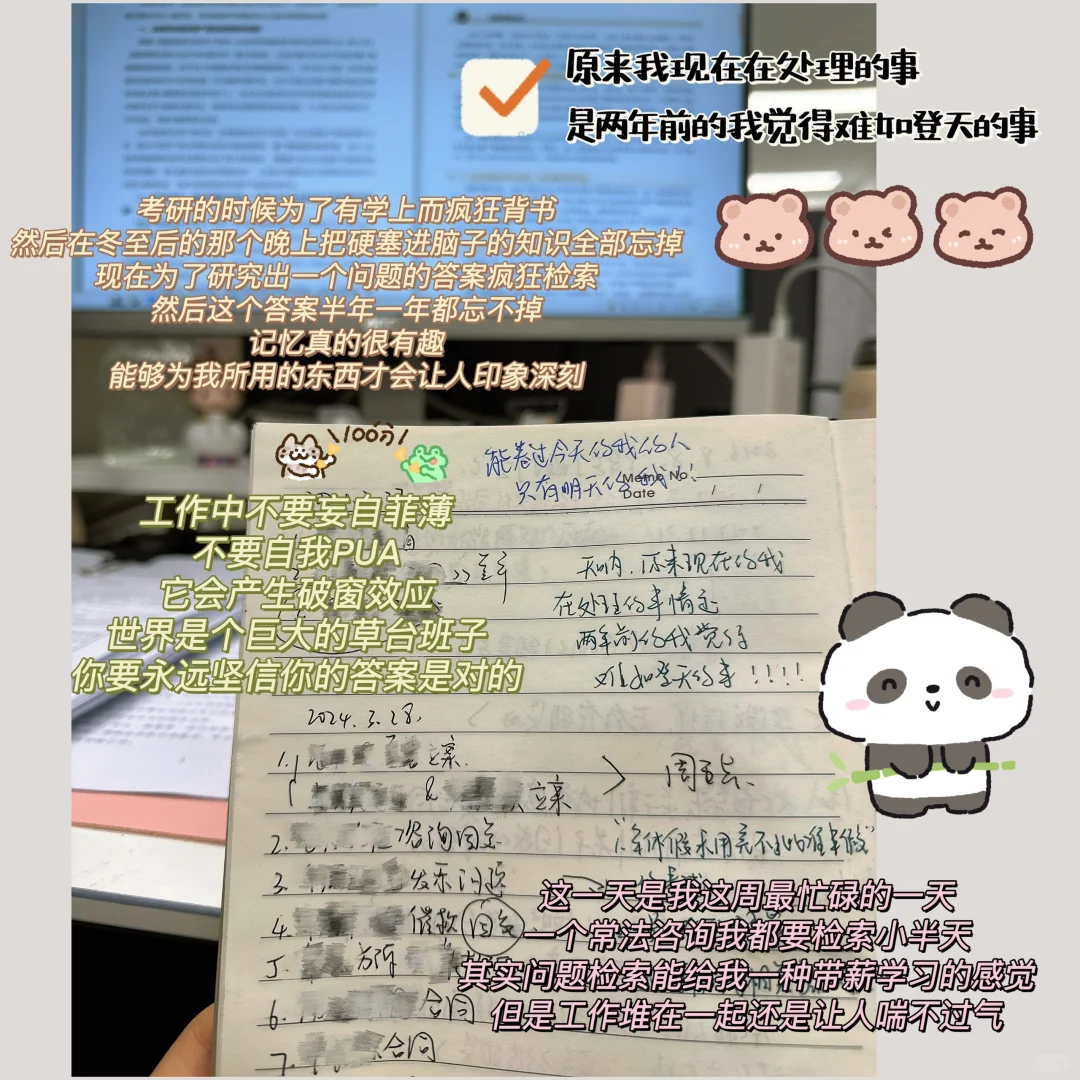 原来我现在在处理的事
是两年前的我觉得难如登天的事
考研的时候为了有学上而疯狂背书
然后在冬至后的那个晚上把硬塞进脑子的知识全部忘掉
现在为了研究出一个问题的答案疯狂检索
然后这个答案半年一年都忘不掉
记忆真的很有趣
能够为我所用的东西才会让人印象深刻
100分
能卷过今天的我的人
只有明天的我!
Memo No.
Date / /
工作中不要妄自菲薄
不要自我PUA
它会产生破窗效应
世界是个巨大的草台班子
你要永远坚信你的答案是对的
天呐,原来现在的我
在处理的事情是
两年前的我觉得
难如登天的事!!!!
2024.3.28.
1. 立案.
& 立案
周五去.
2. 咨询回复
"年休假未用完不批准年假"
3. 发票问题
4. 催款回复
5.
6. 合同
7. 合同
这一天是我这周最忙碌的一天
一个常法咨询我都要检索小半天
其实问题检索能给我一种带薪学习的感觉
但是工作堆在一起还是让人喘不过气